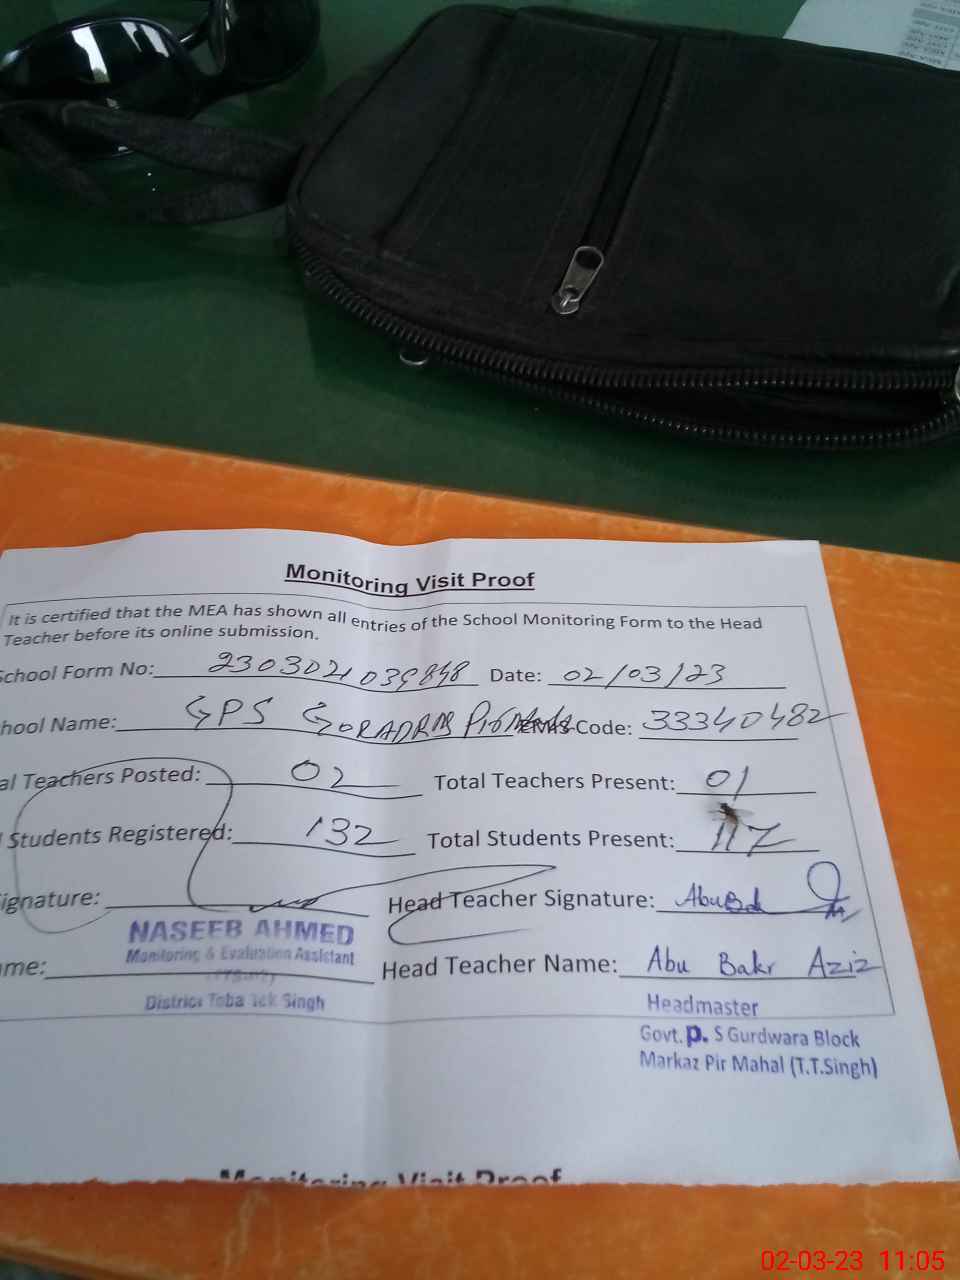 Monitoring Visit Proof
It is certified that the MEA has shown all entries of the School Monitoring Form to the Head
Teacher before its online submission.
School Form No: Date: 02/03/23
hool Name: GPS Code: 33340482
al Teachers Posted: 02 Total Teachers Present: 01
Students Registered: 132 Total Students Present: 117
ignature: Head Teacher Signature: 
NASEEB AHMED
Monitoring & Evaluation Assistant
me: Head Teacher Name: Abu Bakr Aziz
District Toba Tek Singh
Headmaster
Govt. P. S Gurdwara Block
Markaz Pir Mahal (T.T.Singh)
Monitoring Visit Proof
02-03-23 11:05